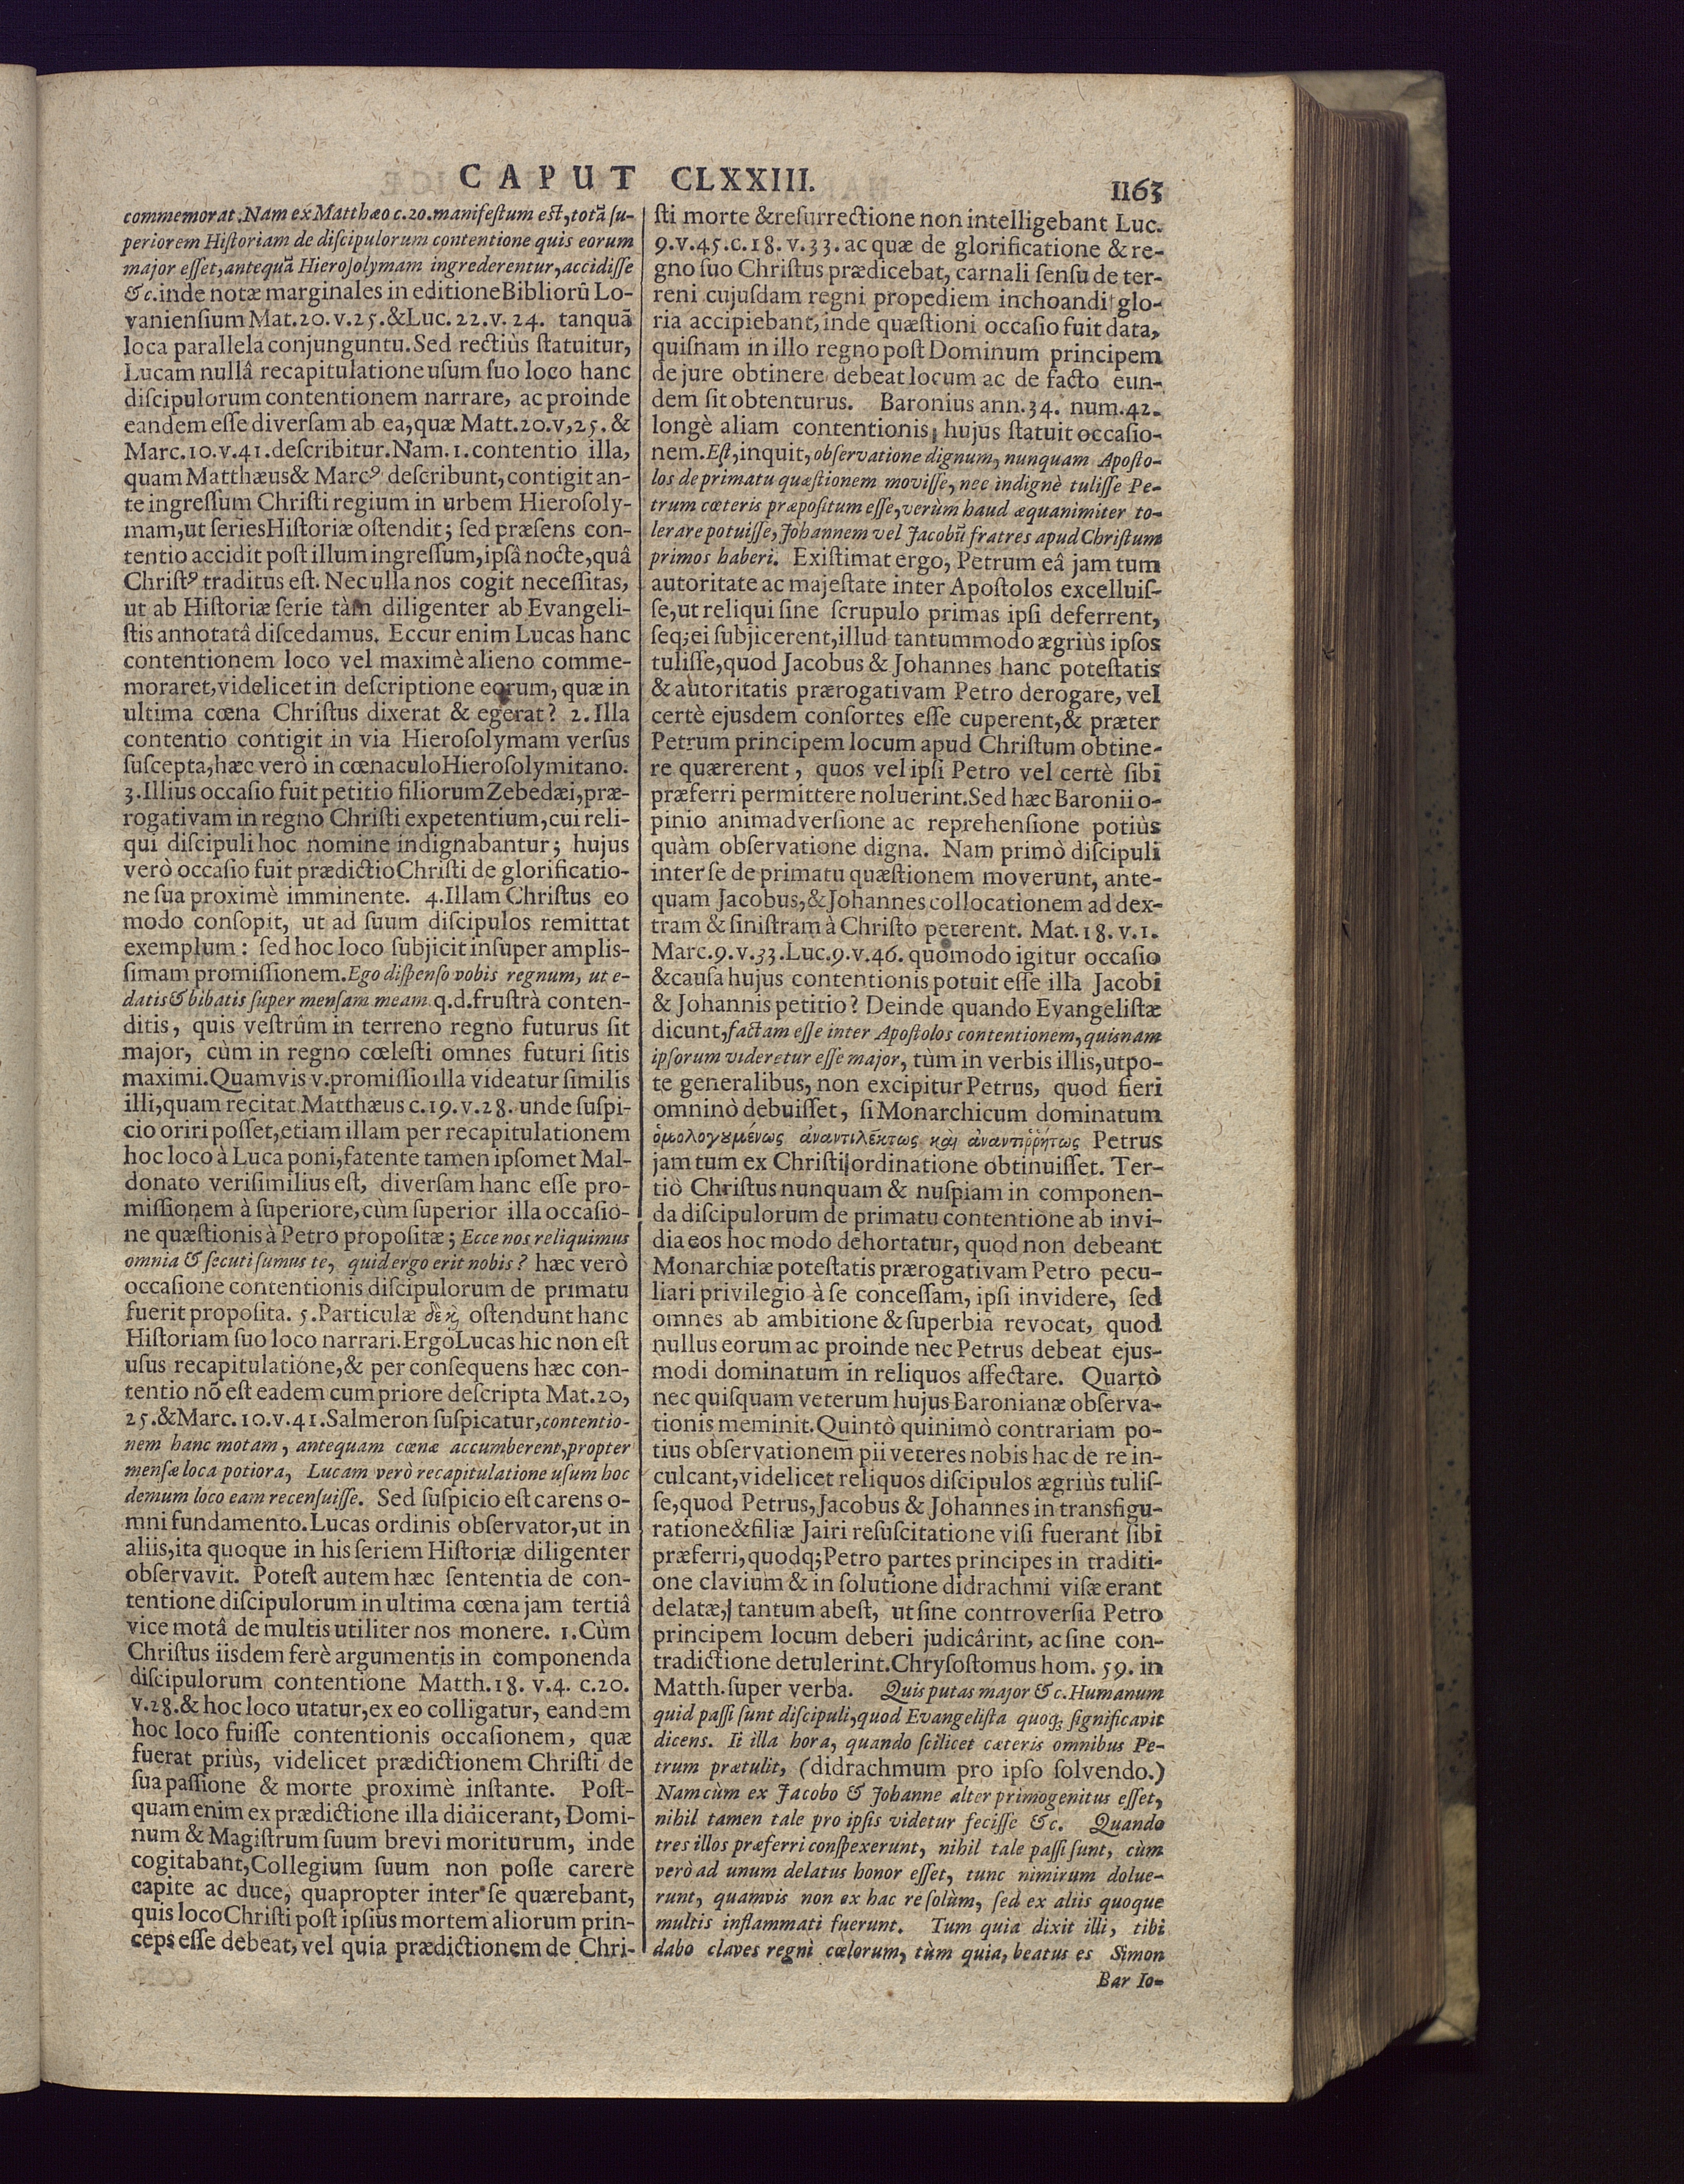 CAPUT CLXXIII.
1163
commemorat. Nam ex Matthæo c. 20. manifeſtum eſt, totã ſu-
periorem Hiſtoriam de diſcipulorum contentione quis eorum
major eſſet, antequã Hieroſolymam ingrederentur, accidiſſe
&c. inde notæ marginales in editione Bibliorũ Lo-
vanienſium Mat. 20. v. 25. & Luc. 22. v. 24. tanquã
loca parallela conjunguntu. Sed rectiùs ſtatuitur,
Lucam nullâ recapitulatione uſum ſuo loco hanc
diſcipulorum contentionem narrare, ac proinde
eandem eſſe diverſam ab ea, quæ Matt. 20. v, 25. &
Marc. 10. v. 41. deſcribitur. Nam. 1. contentio illa,
quam Matthæus & Marcꝰ deſcribunt, contigit an-
te ingreſſum Chriſti regium in urbem Hieroſoly-
mam, ut ſeries Hiſtoriæ oſtendit; ſed præſens con-
tentio accidit poſt illum ingreſſum, ipſâ nocte, quâ
Chriſtꝰ traditus eſt. Nec ulla nos cogit neceſſitas,
ut ab Hiſtoriæ ſerie tàm diligenter ab Evangeli-
ſtis annotatâ diſcedamus. Eccur enim Lucas hanc
contentionem loco vel maximè alieno comme-
moraret, videlicet in deſcriptione eorum, quæ in
ultima cœna Chriſtus dixerat & egerat? 2. Illa
contentio contigit in via Hieroſolymam verſus
ſuſcepta, hæc verò in cœnaculo Hieroſolymitano.
3. Illius occaſio fuit petitio filiorum Zebedæi, præ-
rogativam in regno Chriſti expetentium, cui reli-
qui diſcipuli hoc nomine indignabantur; hujus
verò occaſio fuit prædictio Chriſti de glorificatio-
ne ſua proximè imminente. 4. Illam Chriſtus eo
modo conſopit, ut ad ſuum diſcipulos remittat
exemplum: ſed hoc loco ſubjicit inſuper amplis-
ſimam promiſſionem. Ego diſpenſo vobis regnum, ut e-
datis & bibatis ſuper menſam meam. q. d. fruſtrà conten-
ditis, quis veſtrûm in terreno regno futurus ſit
major, cùm in regno cœleſti omnes futuri ſitis
maximi. Quamvis v. promiſſio illa videatur ſimilis
illi, quam recitat Matthæus c. 19. v. 28. unde ſuſpi-
cio oriri poſſet, etiam illam per recapitulationem
hoc loco à Luca poni, fatente tamen ipſomet Mal-
donato veriſimilius eſt, diverſam hanc eſſe pro-
miſſionem à ſuperiore, cùm ſuperior illa occaſio-
ne quæſtionis à Petro propoſitæ; Ecce nos reliquimus
omnia & ſecuti ſumus te, quid ergo erit nobis? hæc verò
occaſione contentionis diſcipulorum de primatu
fuerit propoſita. 5. Particulæ δὲ κ̀ oſtendunt hanc
Hiſtoriam ſuo loco narrari. Ergo Lucas hic non eſt
uſus recapitulatione, & per conſequens hæc con-
tentio nõ eſt eadem cum priore deſcripta Mat. 20,
25. & Marc. 10. v. 41. Salmeron ſuſpicatur, contentio-
nem hanc motam, antequam cœnæ accumberent, propter
menſæ loca potiora, Lucam verò recapitulatione uſum hoc
demum loco eam recenſuiſſe. Sed ſuſpicio eſt carens o-
mni fundamento. Lucas ordinis obſervator, ut in
aliis, ita quoque in his ſeriem Hiſtoriæ diligenter
obſervavit. Poteſt autem hæc ſententia de con-
tentione diſcipulorum in ultima cœna jam tertiâ
vice motâ de multis utiliter nos monere. 1. Cùm
Chriſtus iisdem ferè argumentis in componenda
diſcipulorum contentione Matth. 18. v. 4. c. 20.
v. 28. & hoc loco utatur, ex eo colligatur, eandem
hoc loco fuiſſe contentionis occaſionem, quæ
fuerat priùs, videlicet prædictionem Chriſti de
ſua paſſione & morte proximè inſtante. Poſt-
quam enim ex prædictione illa didicerant, Domi-
num & Magiſtrum ſuum brevi moriturum, inde
cogitabant, Collegium ſuum non poſſe carere
capite ac duce, quapropter inter ſe quærebant,
quis loco Chriſti poſt ipſius mortem aliorum prin-
ceps eſſe debeat, vel quia prædictionem de Chri-
ſti morte & reſurrectione non intelligebant Luc.
9. v. 45. c. 18. v. 33. ac quæ de glorificatione & re-
gno ſuo Chriſtus prædicebat, carnali ſenſu de ter-
reni cujuſdam regni propediem inchoandi glo-
ria accipiebant, inde quæſtioni occaſio fuit data,
quiſnam in illo regno poſt Dominum principem
de jure obtinere debeat locum ac de facto eun-
dem ſit obtenturus. Baronius ann. 34. num. 42.
longè aliam contentionis hujus ſtatuit occaſio-
nem. Eſt, inquit, obſervatione dignum, nunquam Apoſto-
los de primatu quæſtionem moviſſe, nec indignè tuliſſe Pe-
trum cæteris præpoſitum eſſe, verùm haud æquanimiter to-
lerare potuiſſe, Johannem vel Jacobũ fratres apud Chriſtum
primos haberi. Exiſtimat ergo, Petrum eâ jam tum
autoritate ac majeſtate inter Apoſtolos excelluiſ-
ſe, ut reliqui ſine ſcrupulo primas ipſi deferrent,
ſeq; ei ſubjicerent, illud tantummodo ægriùs ipſos
tuliſſe, quod Jacobus & Johannes hanc poteſtatis
& autoritatis prærogativam Petro derogare, vel
certè ejusdem conſortes eſſe cuperent, & præter
Petrum principem locum apud Chriſtum obtine-
re quærerent, quos vel ipſi Petro vel certè ſibi
præferri permittere noluerint. Sed hæc Baronii o-
pinio animadverſione ac reprehenſione potiùs
quàm obſervatione digna. Nam primò diſcipuli
inter ſe de primatu quæſtionem moverunt, ante-
quam Jacobus, & Johannes collocationem ad dex-
tram & ſiniſtram à Chriſto peterent. Mat. 18. v. 1.
Marc. 9. v. 33. Luc. 9. v. 46. quomodo igitur occaſio
& cauſa hujus contentionis potuit eſſe illa Jacobi
& Johannis petitio? Deinde quando Evangeliſtæ
dicunt, factam eſſe inter Apoſtolos contentionem, quisnam
ipſorum videretur eſſe major, tùm in verbis illis, utpo-
te generalibus, non excipitur Petrus, quod fieri
omninò debuiſſet, ſi Monarchicum dominatum
ὁμολογȣμένως ἀναντιλέκτως καὶ ἀναντιῤῥήτως Petrus
jam tum ex Chriſti ordinatione obtinuiſſet. Ter-
tiò Chriſtus nunquam & nuſpiam in componen-
da diſcipulorum de primatu contentione ab invi-
dia eos hoc modo dehortatur, quod non debeant
Monarchiæ poteſtatis prærogativam Petro pecu-
liari privilegio à ſe conceſſam, ipſi invidere, ſed
omnes ab ambitione & ſuperbia revocat, quod
nullus eorum ac proinde nec Petrus debeat ejus-
modi dominatum in reliquos affectare. Quartò
nec quiſquam veterum hujus Baronianæ obſerva-
tionis meminit. Quintò quinimò contrariam po-
tius obſervationem pii veteres nobis hac de re in-
culcant, videlicet reliquos diſcipulos ægriùs tuliſ-
ſe, quod Petrus, Jacobus & Johannes in transfigu-
ratione & filiæ Jairi reſuſcitatione viſi fuerant ſibi
præferri, quodq; Petro partes principes in traditi-
one clavium & in ſolutione didrachmi viſæ erant
delatæ, tantum abeſt, ut ſine controverſia Petro
principem locum deberi judicârint, ac ſine con-
tradictione detulerint. Chryſoſtomus hom. 59. in
Matth. ſuper verba. Quis putas major &c. Humanum
quid paſſi ſunt diſcipuli, quod Evangeliſta quoq; ſignificavit
dicens. Ii illa hora, quando ſcilicet cæteris omnibus Pe-
trum prætulit, (didrachmum pro ipſo ſolvendo.)
Nam cùm ex Jacobo & Johanne alter primogenitus eſſet,
nihil tamen tale pro ipſis videtur feciſſe &c. Quando
tres illos præferri conſpexerunt, nihil tale paſſi ſunt, cùm
verò ad unum delatus honor eſſet, tunc nimirum dolue-
runt, quamvis non ex hac re ſolùm, ſed ex aliis quoque
multis inflammati fuerunt. Tum quia dixit illi, tibi
dabo claves regni cœlorum, tùm quia, beatus es Simon
Bar Io-